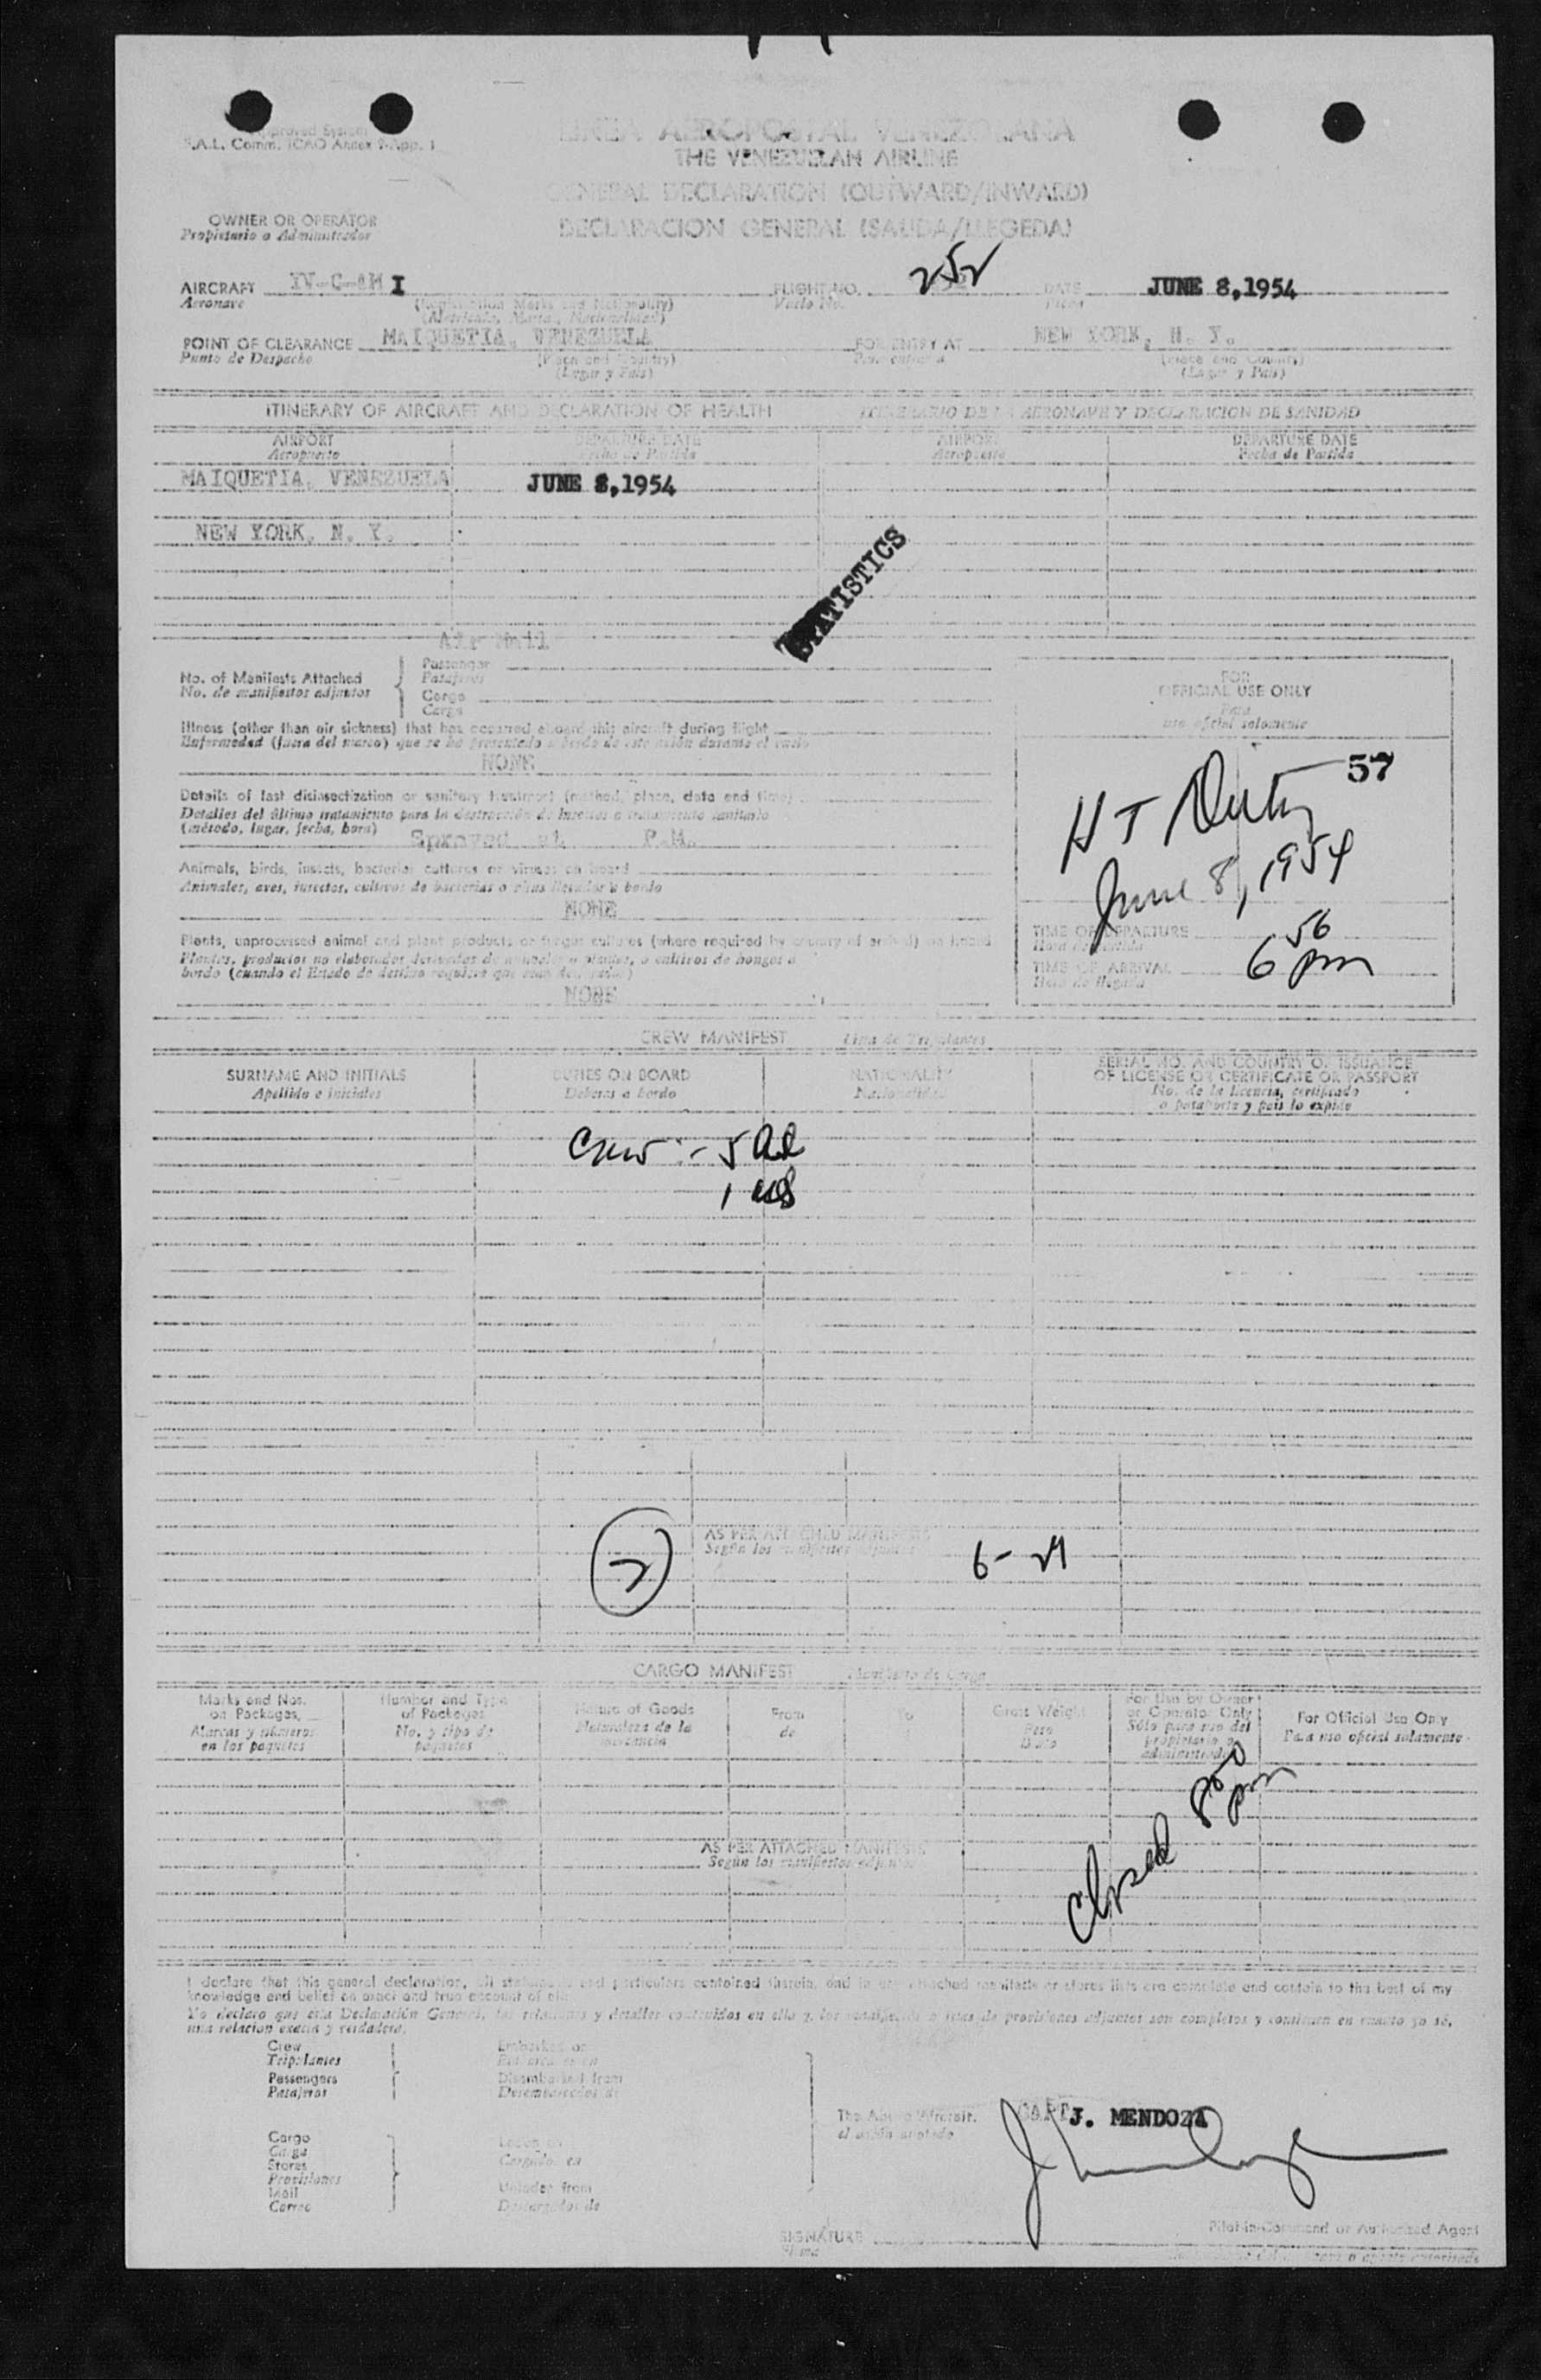 Approved System
S.A.L. Comm. ICAO Annex 9-App. 1
LINEA AEROPOSTAL VENEZOLANA
THE VENEZUELAN AIRLINE
GENERAL DECLARATION (OUTWARD/INWARD)
DECLARACION GENERAL (SALIDA/LLEGEDA)
OWNER OR OPERATOR
Propietario o Administrador
AIRCRAFT YV-C-AMI FLIGHT NO. 252 DATE JUNE 8,1954
Aeronave (Registration Marks and Nationality) Vuelo No. Fecha
POINT OF CLEARANCE MAIQUETIA, VENEZUELA FOR ENTRY AT NEW YORK, N. Y.
Punto de Despacho (Place and Country) (Place and Country)
(Lugar y Pais) (Lugar y Pais)
ITINERARY OF AIRCRAFT AND DECLARATION OF HEALTH ITINERARIO DE LA AERONAVE Y DECLARACION DE SANIDAD
AIRPORT DEPARTURE DATE AIRPORT DEPARTURE DATE
Aeropuerto Fecha de Partida Aeropuerto Fecha de Partida
MAIQUETIA, VENEZUELA JUNE 8,1954
NEW YORK, N. Y.
STATISTICS
Air Mail
No. of Manifests Attached Passenger
No. de manifiestos adjuntos Pasajeros
Cargo
Carga
FOR
OFFICIAL USE ONLY
Para
uso oficial solamente
Illness (other than air sickness) that has occurred aboard this aircraft during flight
Enfermedad (fuera del mareo) que se ha presentado a bordo de este avión durante el vuelo
NONE
57
Details of last disinsectization or sanitary treatment (method, place, date and time)
Detalles del último tratamiento para la destrucción de insectos o tratamiento sanitario
(método, lugar, fecha, hora) Sprayed at P.M.
June 8, 1954
Animals, birds, insects, bacterial cultures or viruses on board
Animales, aves, insectos, cultivos de bacterias o virus llevados a bordo
NONE
Plants, unprocessed animal and plant products or fungus cultures (where required by country of arrival) on board
Plantas, productos no elaborados derivados de animales o plantas, o cultivos de hongos a
bordo (cuando el Estado de destino requiere que sean declarados)
NONE
TIME OF DEPARTURE
Hora de Partida
TIME OF ARRIVAL 6 56 pm
Hora de llegada
CREW MANIFEST Lista de Tripulantes
SURNAME AND INITIALS DUTIES ON BOARD NATIONALITY SERIAL NO. AND COUNTRY OF ISSUANCE
OF LICENSE OR CERTIFICATE OR PASSPORT
Apellido e iniciales Deberes a bordo Nacionalidad No. de la licencia, certificado
o pasaporte y pais lo expide
Crew :- 5 al
1 US
AS PER ATTACHED MANIFESTS
Según los manifiestos adjuntos
2
6-
CARGO MANIFEST Manifiesto de Carga
Marks and Nos. on Packages, Number and Type of Packages Nature of Goods From To Gross Weight For Use by Owner or Operator Only For Official Use Only
Marcas y números en los paquetes No. y tipo de paquetes Naturaleza de la mercancia de Peso Bruto Sólo para uso del propietario o administrador Para uso oficial solamente
AS PER ATTACHED MANIFESTS
Según los manifiestos adjuntos
Closed 800 pm
I declare that this general declaration, all statements and particulars contained therein, and in any attached manifests or stores lists are complete and contain to the best of my
knowledge and belief an exact and true account of
Yo declaro que esta Declaración General, las relaciones y detalles contenidos en ella y los manifiestos o listas de provisiones adjuntos son completos y contienen en cuanto yo sé,
una relacion exacta y verdadera.
Crew Embarked on
Tripulantes Embarcados en
Passengers Disembarked from
Pasajeros Desembarcados de
The Above Aircraft.
el avión anotado
CAPT. J. MENDOZA
Cargo Laden on
Carga Cargado en
Stores
Provisiones
Mail Unladen from
Correo Descargados de
SIGNATURE
Firma
Pilot-in-Command or Authorized Agent